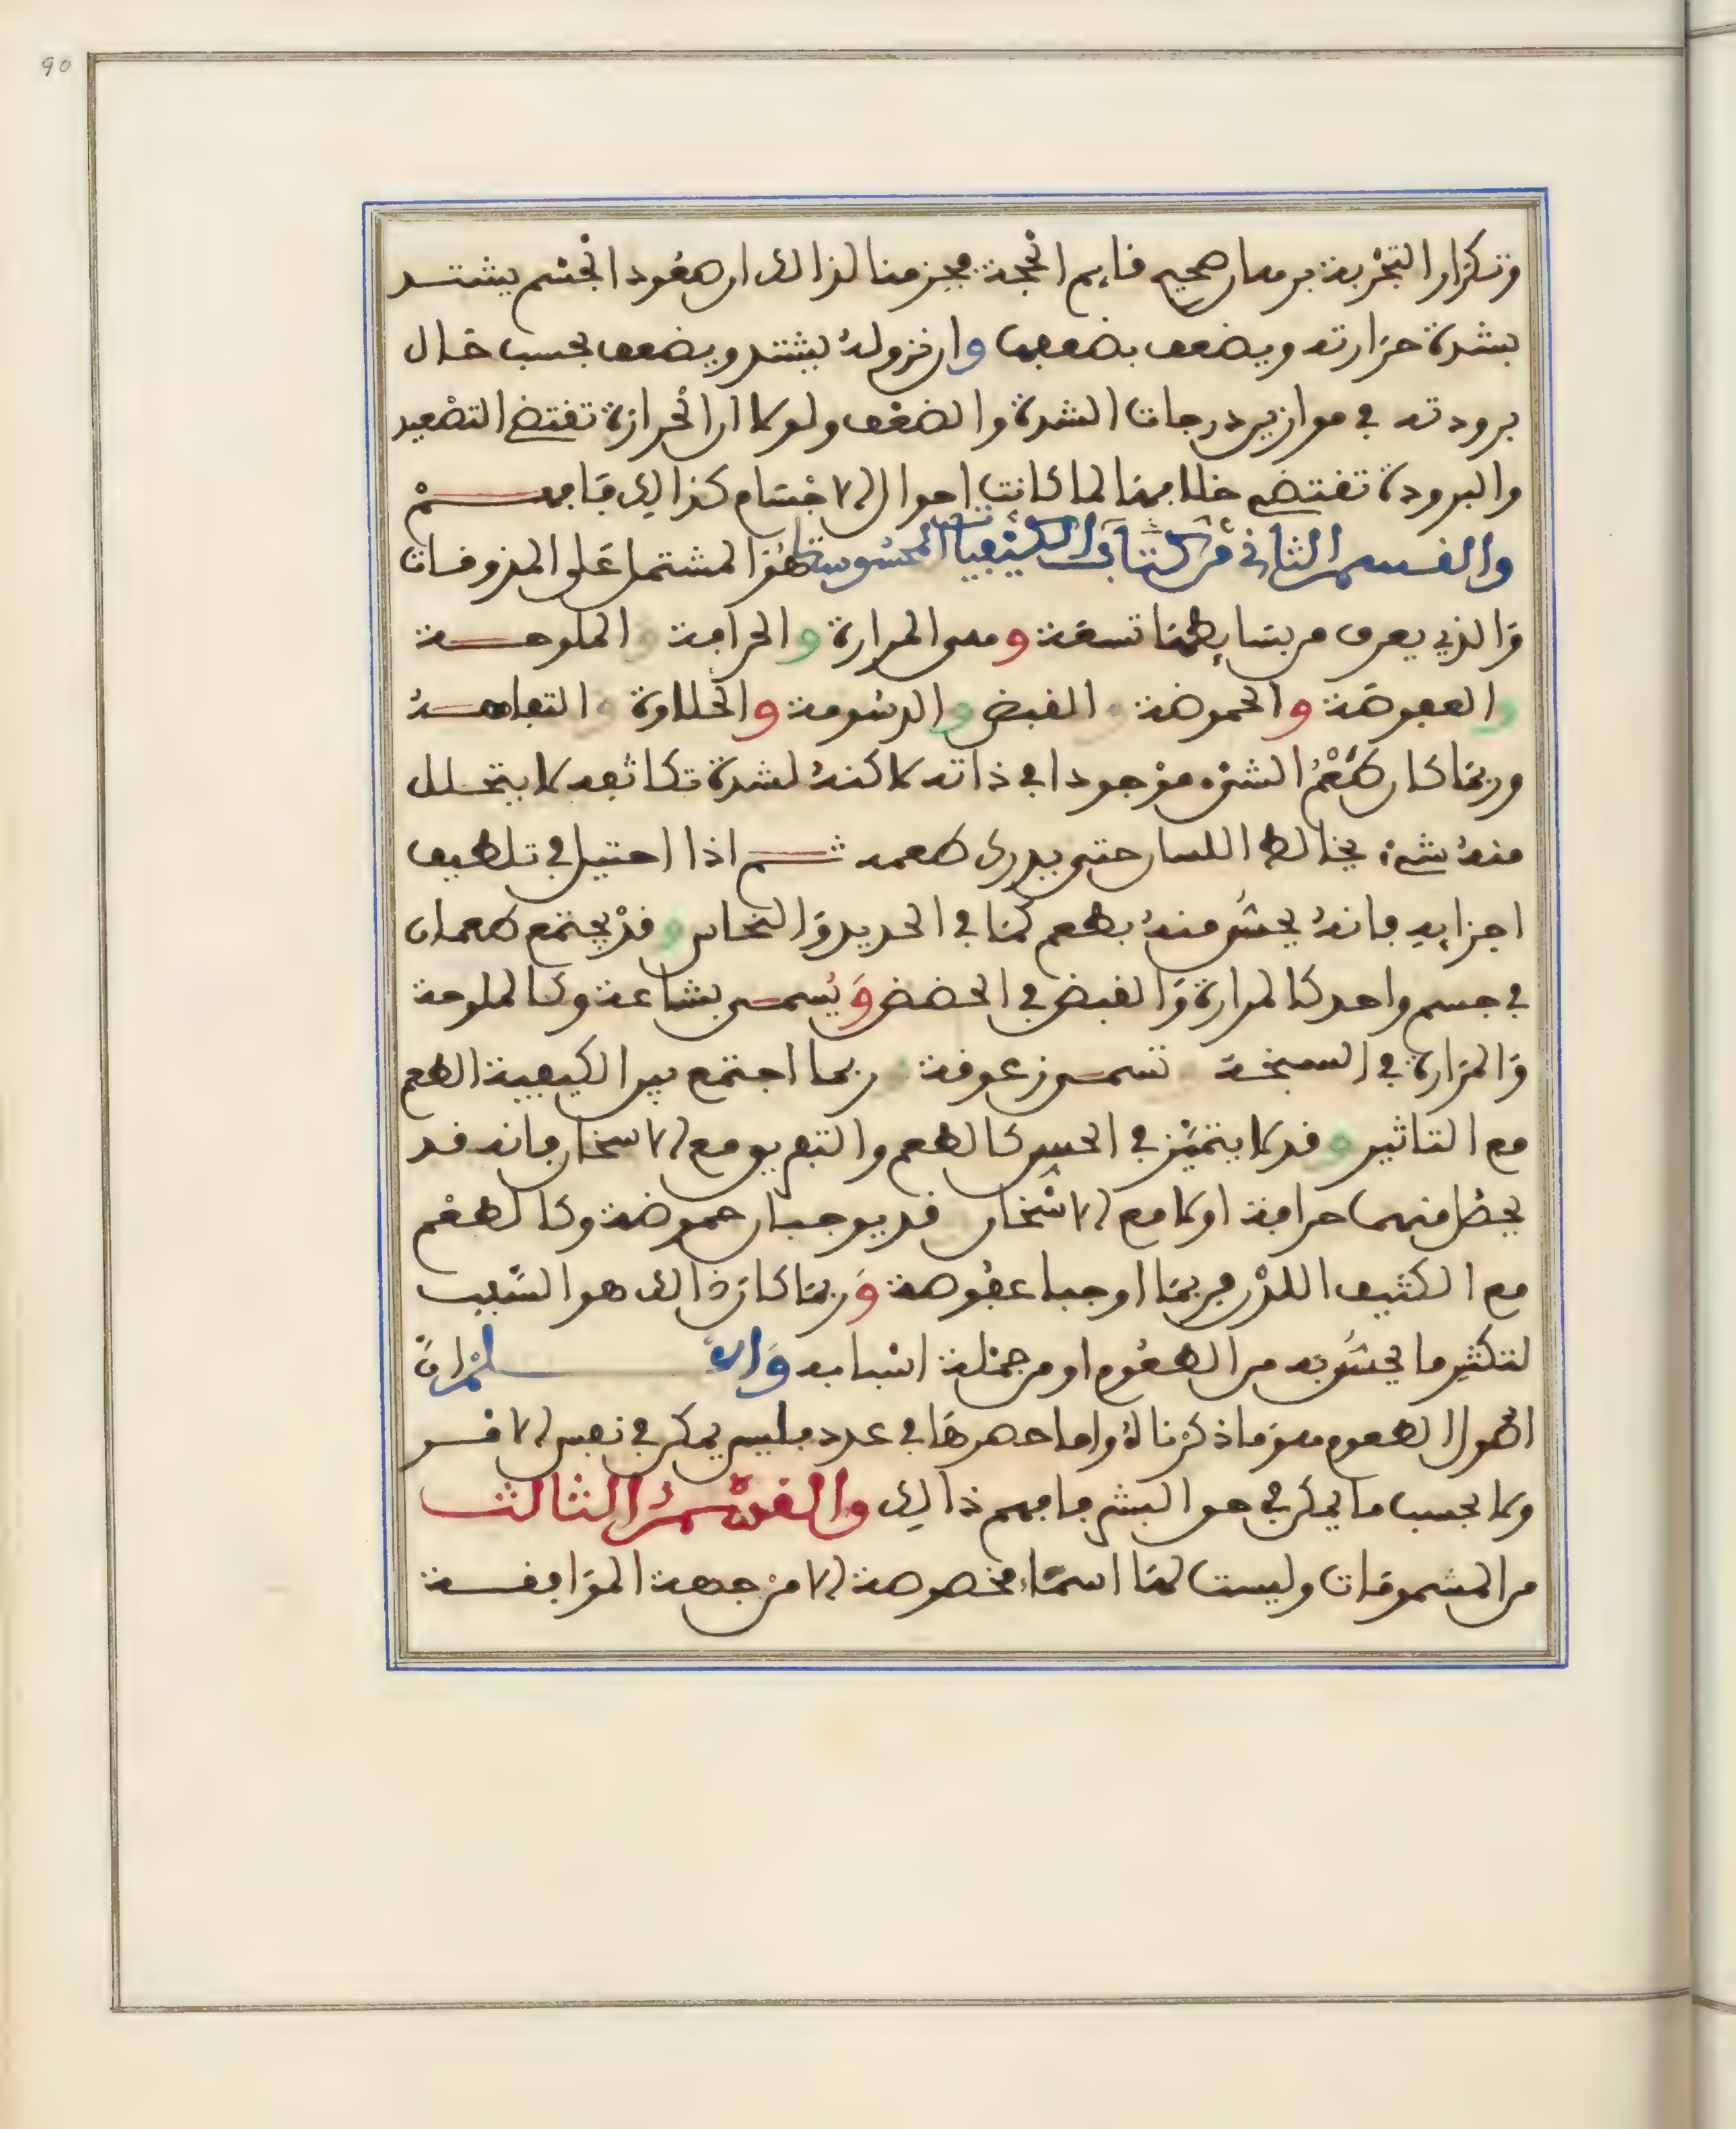 90
وتكرار التجربة برهان صحيح قايم الحجة فجزمنا لذالك ان صعود الجسم يشتد
بشدة حرارته ويضعف بضعفها وان نزوله يشتد ويضعف بحسب حال
برودته في موازين درجات الشدة والضعف ولولا ان الحرارة تقتضي التصعيد
والبرودة تقتضي خلافها لما كانت احوال الاجسام كذالك فافهم
والقسم الثاني من كتاب الكيفيات المحسوسات هو المشتمل على المذوقات
والذي يعرف من بسايطها تسعة وهي المرارة والحرافة والملوحة
والعفوصة والحموضة والقبض والدسومة والحلاوة والتفاهة
وربما كان طعم الشيء موجودا في ذاته لاكنه لشدة تكاثفه لا يتحلل
منه شيء يخالط اللسان حتى يدرك طعمه ثم اذا احتيل في تلطيف
اجزايه فانه يحس منه بطعم كما في الحديد والنحاس وقد يجتمع طعمان
في جسم واحد كالمرارة والقبض في الحضض ويسمى بشاعة وكالملوحة
والمرارة في السبخة وتسمى زعوقة وربما اجتمع بين الكيفية الطعم
مع التاثير وقد لا يتميز في الحس كالطعم والتفريق مع الاسخان فانه قد
يحصل منهما حرافة اولا مع الاسخان قد يوجبان حموضة وكالطعم
مع الكثيف اللذن فربما اوجبا عفوصة وربما كان ذالك هو السبب
لتكثير ما يحس به من الطعوم او من جملة اسبابه والا لمران
اصول الطعوم هو ما ذكرناه واما حصرها في عدد فليس يمكن في نفس الامر
ولا بحسب ما يمكن في حق البشر فافهم ذالك والقسم الثالث
من المشمومات وليست لها اسماء مخصوصة الا من جهة الموافقة